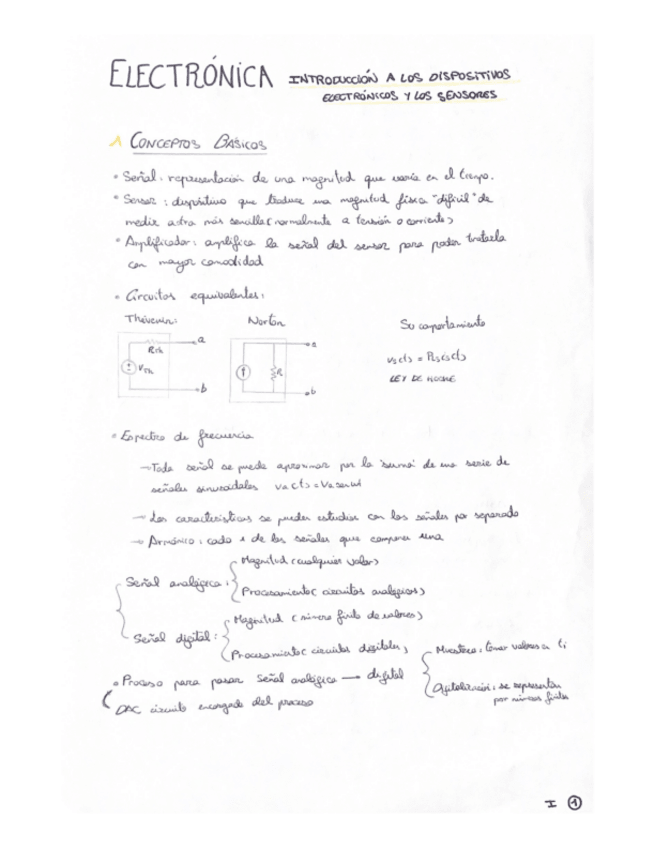 ELECTRÓNICA INTRODUCCIÓN A LOS DISPOSITIVOS
ELECTRÓNICOS Y LOS SENSORES
1 CONCEPTOS BÁSICOS
• Señal: representación de una magnitud que varía en el tiempo.
• Sensor: dispositivo que traduce una magnitud física "difícil" de
medir a otra más sencilla (normalmente a tensión o corriente)
• Amplificador: amplifica la señal del sensor para poder tratarla
con mayor comodidad
• Circuitos equivalentes:
Thévenin: Norton Su comportamiento
a a
Rth
VTh R
b b
LEY DE
• Espectro de frecuencia
→ Toda señal se puede aproximar por la 'suma' de una serie de
señales sinusoidales
→ Las características se pueden estudiar con las señales por separado
→ Armónico: cada 1 de las señales que componen una
Señal analógica: Magnitud (cualquier valor)
Procesamiento (circuitos analógicos)
Señal digital: Magnitud (número finito de valores)
Procesamiento (circuitos digitales)
• Proceso para pasar señal analógica → digital
Muestreo: tomar valores en ti
se representan
por números finitos
DAC circuito encargado del proceso
I 1